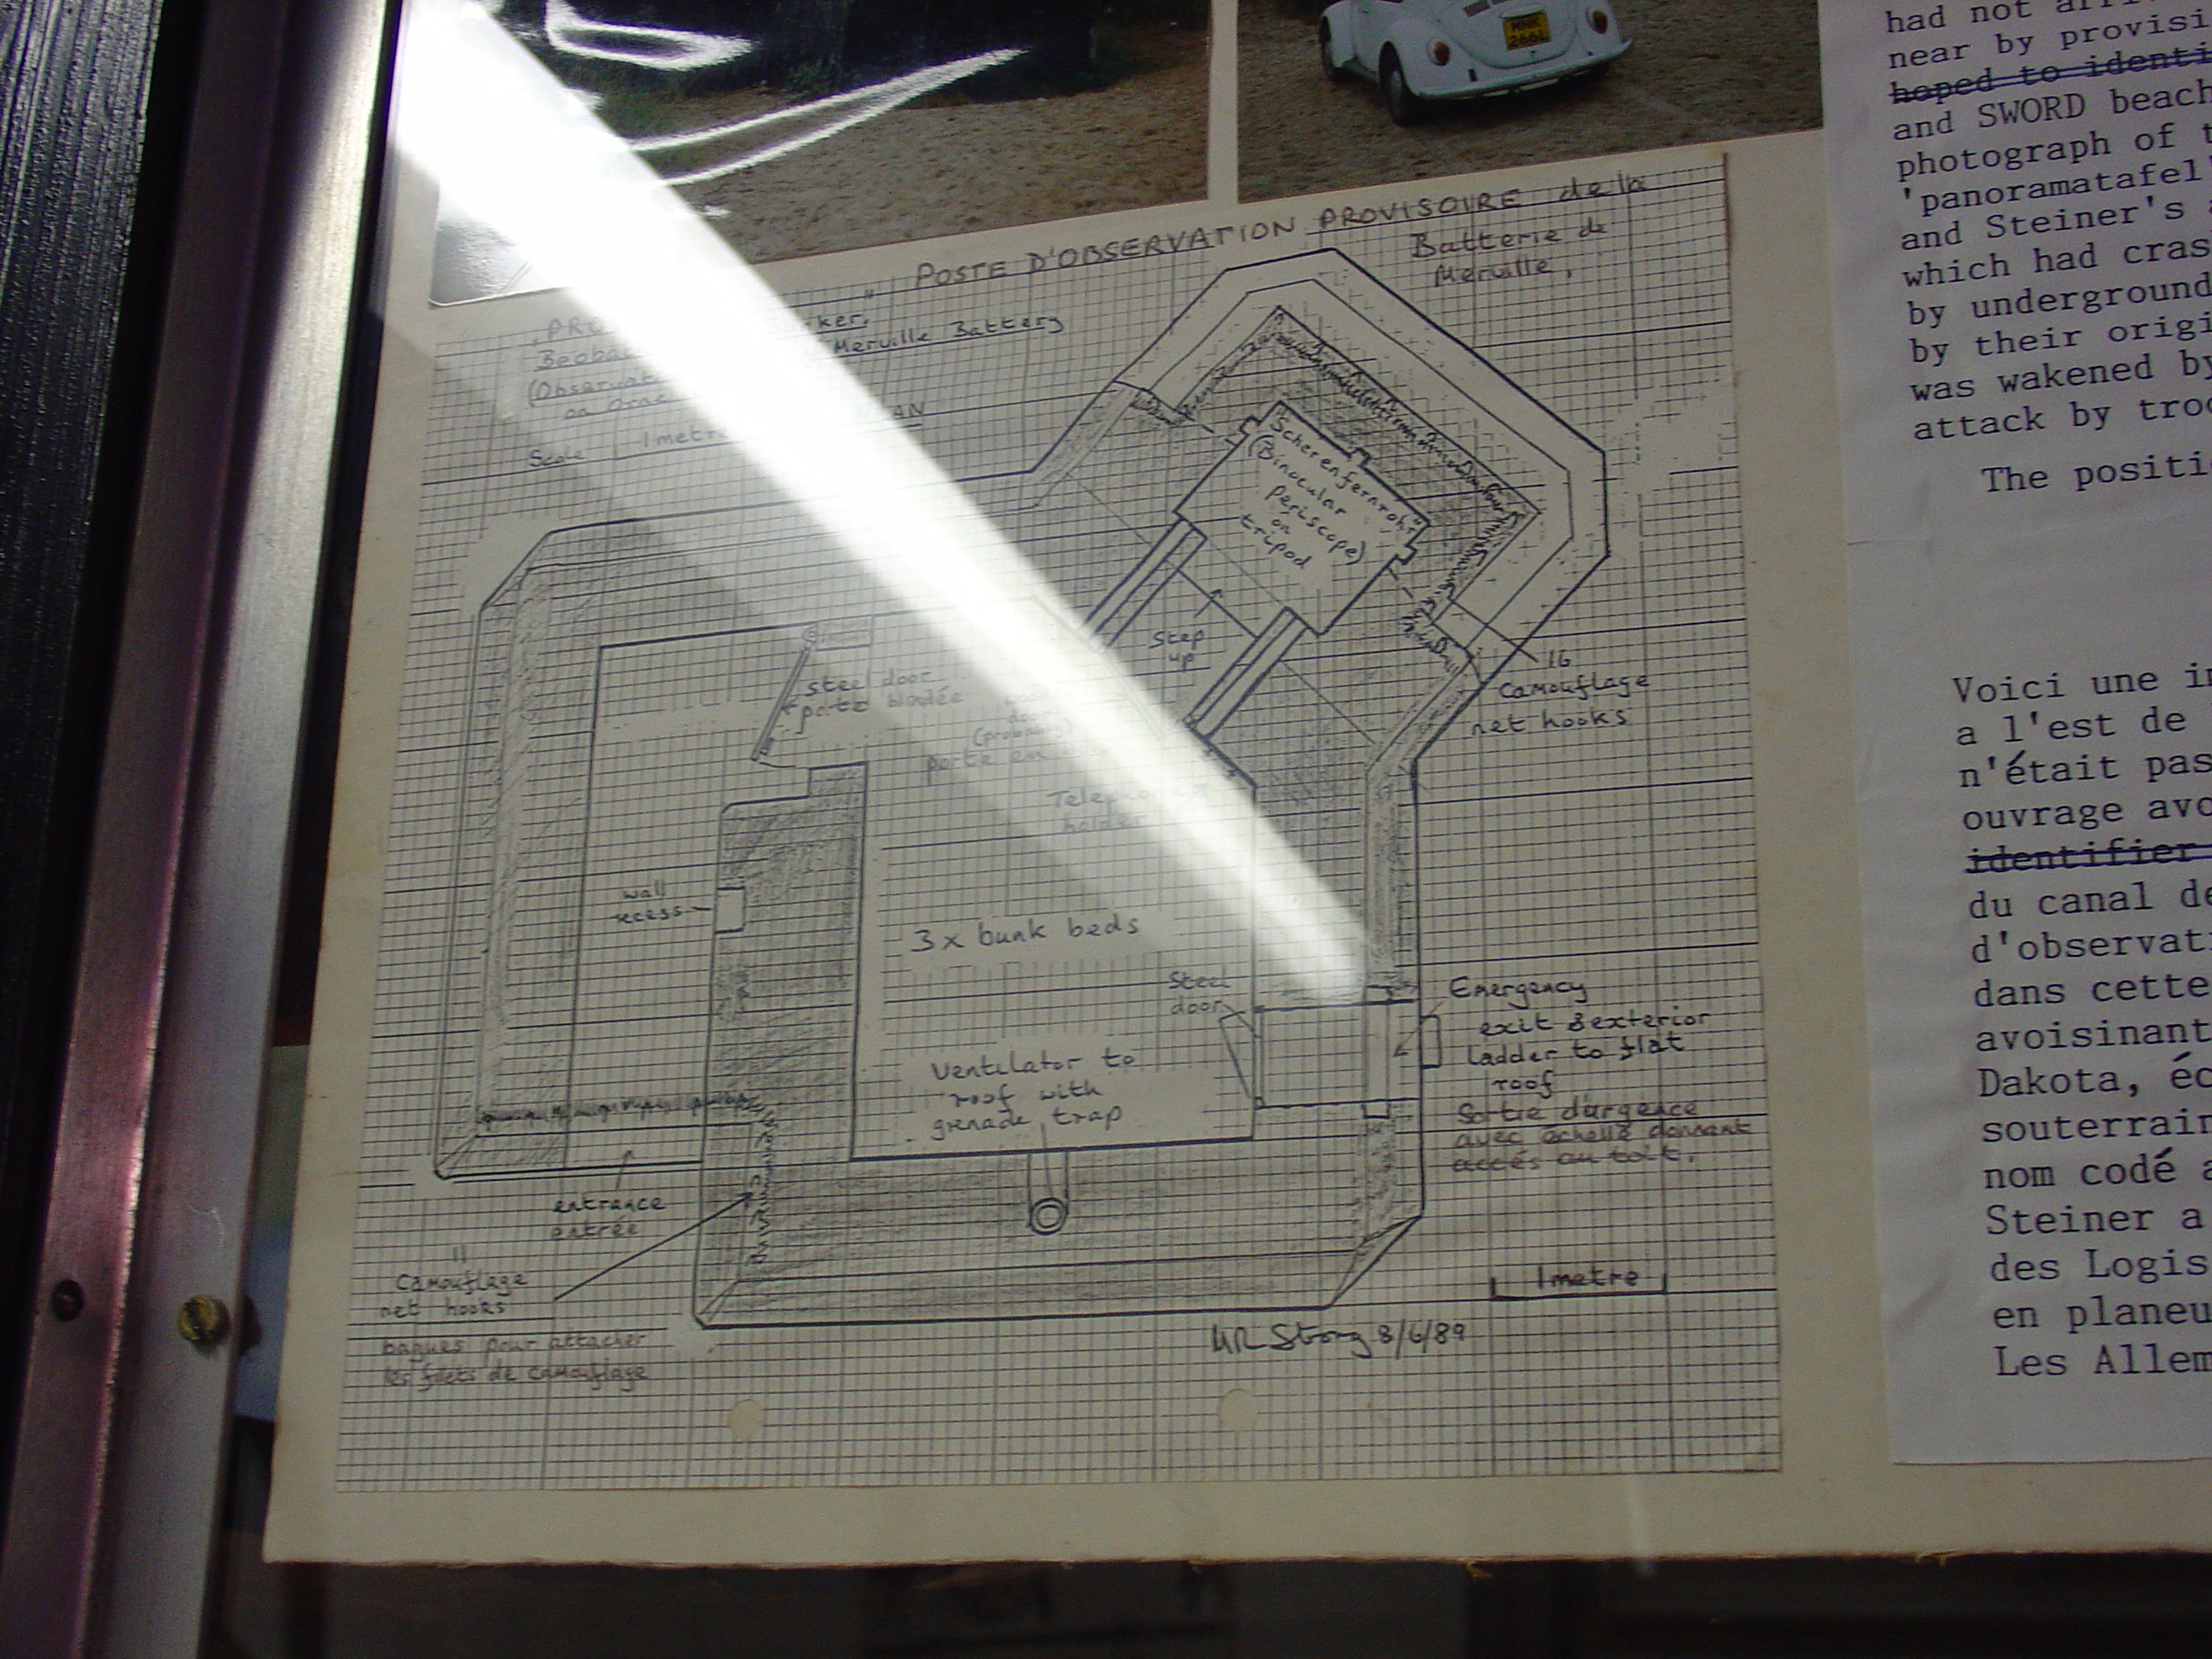 MNK
266L
POSTE D'OBSERVATION PROVISOIRE de la
Batterie de
Merville,
Merville Battery
(Observat
on Orne
Scale 1 metre
"Scherenfernrohr"
(Binocular
periscope)
on
tripod
Step
up
16
Camouflage
net hooks
steel door
porte blindée
(probably)
porte en
Telephone
holder
wall
recess
3 x bunk beds
Steel
door
Ventilator to
roof with
grenade trap
Emergency
exit & exterior
ladder to flat
roof
Sortie d'urgence
avec échelle donnant
accés au toit.
entrance
entrée
11
Camouflage
net hooks
bagues pour attacher
les filets de camouflage
1 metre
MR Strong 8/6/89
had not
near by provisi
hoped to identi
and SWORD beach
photograph of t
'panoramatafel'
and Steiner's a
which had cras
by underground
by their origi
was wakened by
attack by troo
The positi
Voici une in
a l'est de
n'était pas
ouvrage avo
identifier
du canal de
d'observati
dans cette
avoisinant
Dakota, éc
souterrain
nom codé a
Steiner a
des Logis
en planeu
Les Allem